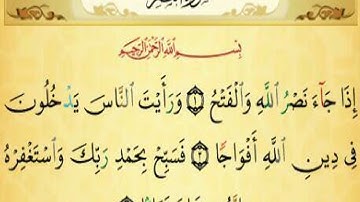 بِسْمِ ٱللَّهِ ٱلرَّحْمَٰنِ ٱلرَّحِيمِ
إِذَا جَآءَ نَصْرُ ٱللَّهِ وَٱلْفَتْحُ ١ وَرَأَيْتَ ٱلنَّاسَ يَدْخُلُونَ
فِى دِينِ ٱللَّهِ أَفْوَاجًا ٢ فَسَبِّحْ بِحَمْدِ رَبِّكَ وَٱسْتَغْفِرْهُ